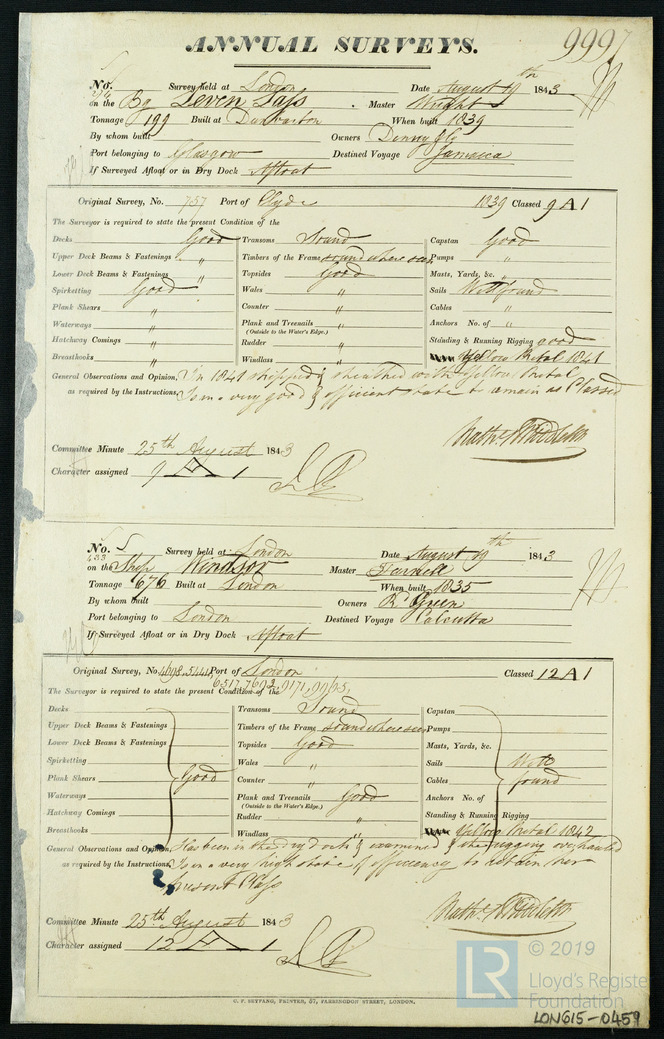 ANNUAL SURVEYS.
9997
No. Survey held at London Date August 19th 1843
on the Bg Leven Lass. Master Wright
Tonnage 199 Built at Dunbarton When built 1839
By whom built Owners Denny & Co
Port belonging to Glasgow Destined Voyage Jamaica
If Surveyed Afloat or in Dry Dock Afloat
Original Survey, No. 757 Port of Clyde 1839 Classed 9 A 1
The Surveyor is required to state the present Condition of the
Decks Good Transoms Sound Capstan Good
Upper Deck Beams & Fastenings " Timbers of the Frame sound where seen Pumps "
Lower Deck Beams & Fastenings " Topsides Good Masts, Yards, &c. "
Spirketting Good Wales " Sails Well found
Plank Shears " Counter " Cables "
Waterways " Plank and Treenails " Anchors No. of "
(Outside to the Water's Edge.)
Hatchway Comings " Rudder " Standing & Running Rigging good
Breasthooks " Windlass " Yellow Metal 1841
General Observations and Opinion, In 1841 stripped & sheathed with Yellow Metal
as required by the Instructions, Is in a very good & efficient state to remain as Classed
Nathl Middleton
Committee Minute 25th August 1843
Character assigned 9 A 1
No. 5 Survey held at London Date August 19th 1843
433
on the Ship Windsor Master Furnell
Tonnage 676 Built at London When built 1835
By whom built Owners R Green
Port belonging to London Destined Voyage Calcutta
If Surveyed Afloat or in Dry Dock Afloat
Original Survey, No. 4698.5441 Port of London Classed 12 A 1
6517,7692,9171,9965,
The Surveyor is required to state the present Condition of the
Decks Transoms Sound Capstan
Upper Deck Beams & Fastenings Timbers of the Frame sound where seen Pumps
Lower Deck Beams & Fastenings Topsides Good Masts, Yards, &c.
Spirketting Wales " Sails Well
Plank Shears Good Counter " Cables found
Waterways Plank and Treenails Good Anchors No. of
(Outside to the Water's Edge.)
Hatchway Comings Rudder Standing & Running Rigging
Breasthooks Windlass " Yellow Metal 1842
General Observations and Opinion, Has been in the dry dock & examined & the rigging overhauled
as required by the Instructions, Is in a very high state of efficiency to retain her
present Class
Nathl Middleton
Committee Minute 25th August 1843
Character assigned 12 A 1
C. F. SEYFANG, PRINTER, 57, FARRINGDON STREET, LONDON.
LR © 2019
Lloyd's Register
Foundation
LON615-0459